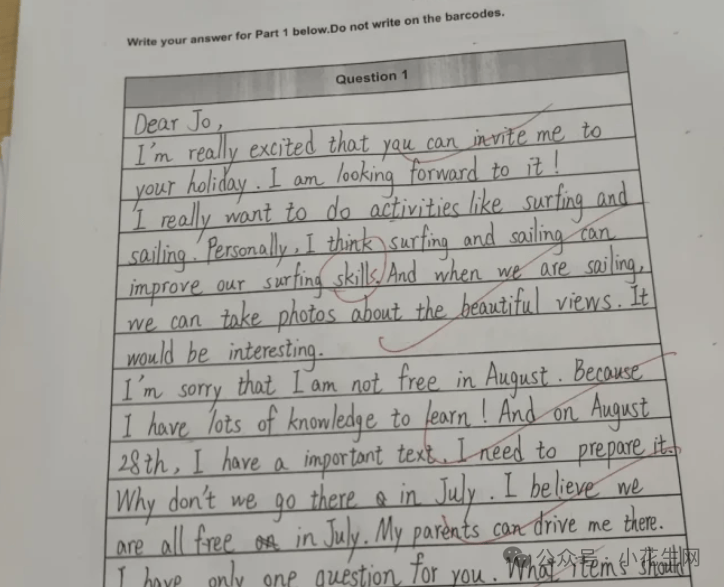 Write your answer for Part 1 below.Do not write on the barcodes.
Question 1
Dear Jo,
I'm really excited that you can invite me to
your holiday. I am looking forward to it!
I really want to do activities like surfing and
sailing. Personally, I think surfing and sailing can
improve our surfing skills. And when we are sailing,
we can take photos about the beautiful views. It
would be interesting.
I'm sorry that I am not free in August. Because
I have lots of knowledge to learn! And on August
28th, I have a important text. I need to prepare it.
Why don't we go there in July. I believe we
are all free in July. My parents can drive me there.
I have only one question for you. What items should
公众号·小花生网